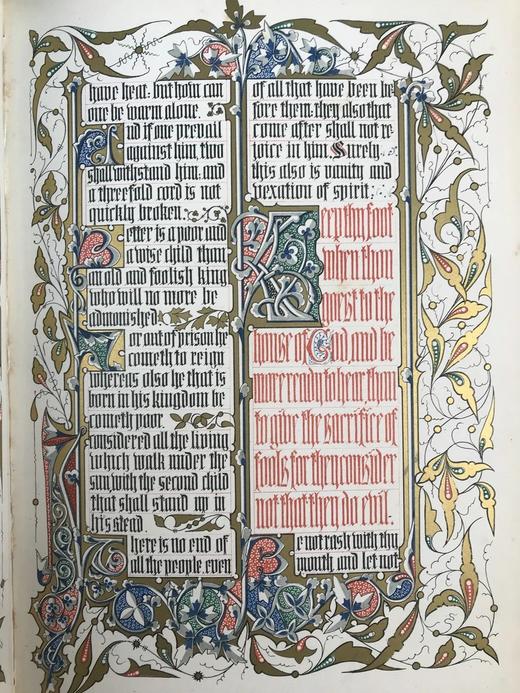 have heat. but how can
one be warm alone.
And if one prevail
against him, two
shall withstand him, and
a threefold cord is not
quickly broken.
Better is a poor and
a wise child than
an old and foolish king
who will no more be
admonished
For out of prison he
cometh to reign
whereas also he that is
born in his kingdom be
cometh poor.
I considered all the living
which walk under the
sun, with the second child
that shall stand up in
his stead
There is no end of
all the people even
of all that have been be
fore them. they also that
come after shall not re
joice in him. Surely
this also is vanity and
vexation of spirit.
Keep thy foot
when thou
goest to the
house of God, and be
more ready to hear, than
to give the sacrifice of
fools for they consider
not that they do evil.
Be not rash with thy
mouth, and let not